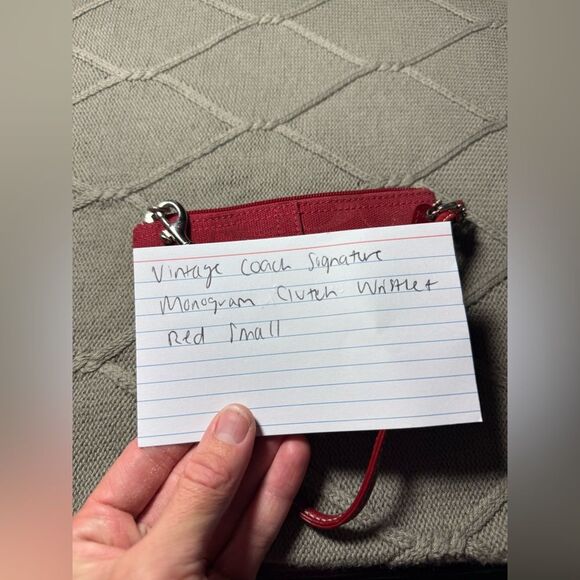 Vintage Coach Signature
Monogram Clutch Wristlet
Red Small